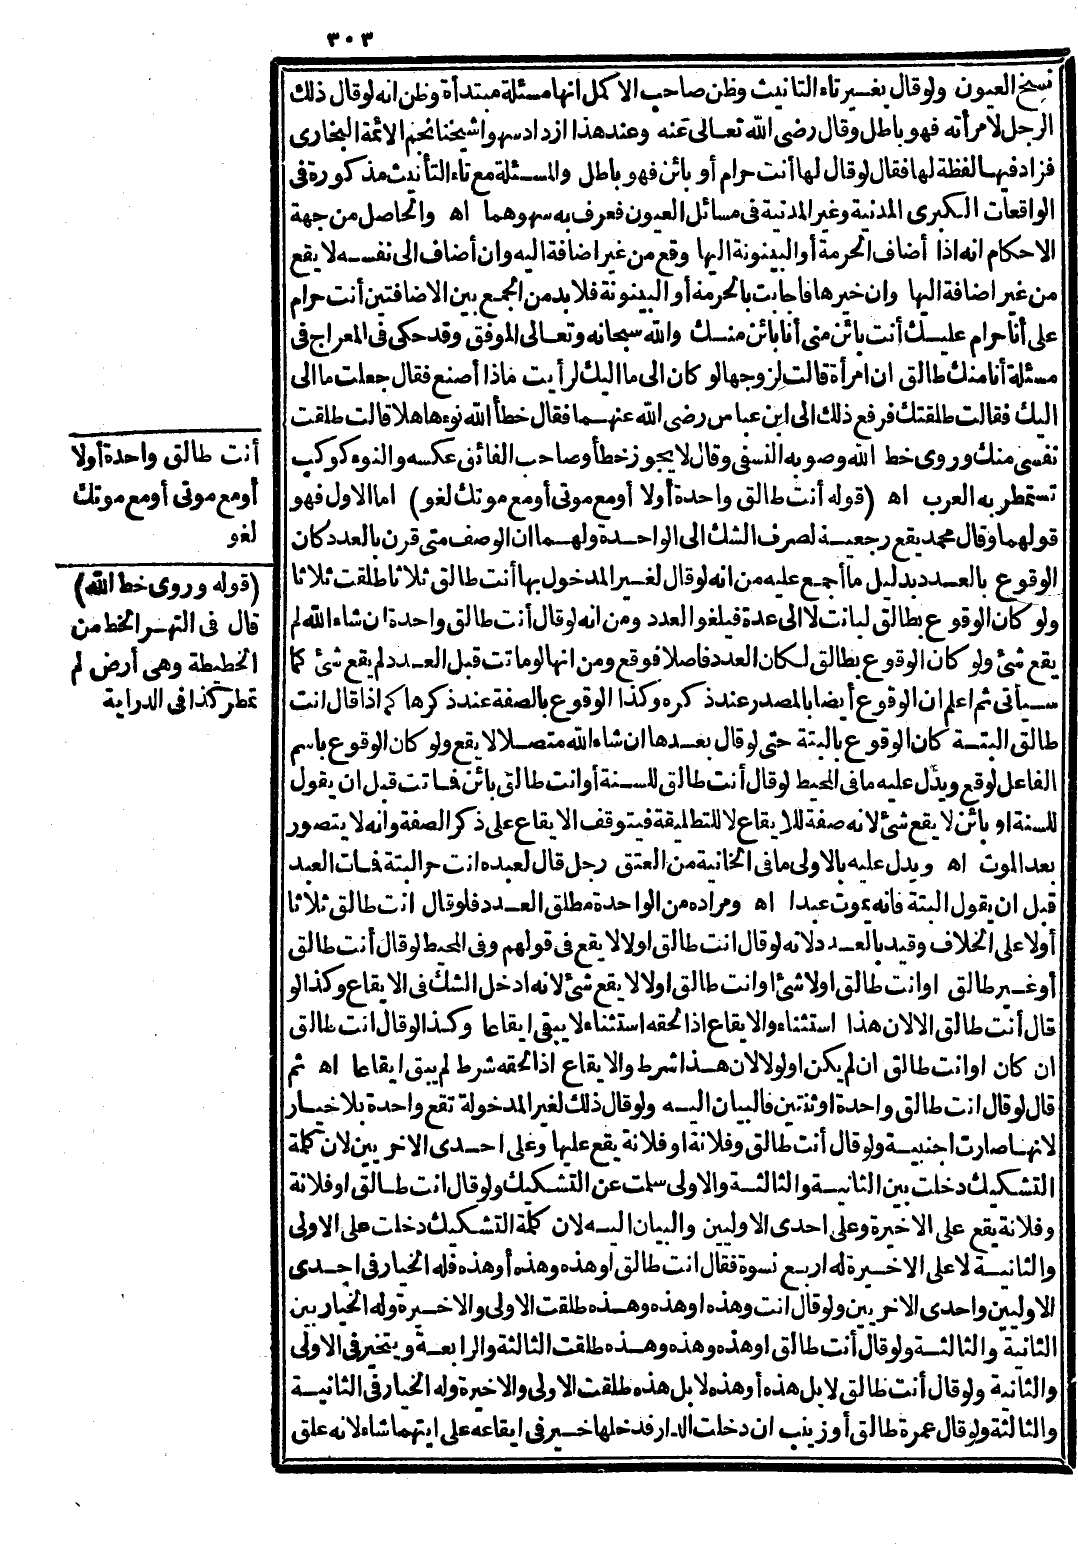 ٣٠٣
نسخ العيون ولو قال بغير تاء التانيث وظن صاحب الاكمل انها مسئلة مبتدأة وظن انه لو قال ذلك
الرجل لامرأته فهو باطل وقال رضى الله تعالى عنه وعند هذا ازداد سهوا شيخنا نجم الائمة البخارى
فزاد فيها لفظة لها فقال لو قال لها أنت حرام أو بائن فهو باطل والمسئلة مع تاء التأنيث مذكورة فى
الواقعات الكبرى المدنية وغير المدنية فى مسائل العيون فعرف به سهوهما اه والحاصل من جهة
الاحكام انه اذا أضاف الحرمة أو البينونة اليها وقع من غير اضافة اليه وان أضاف الى نفسه لا يقع
من غير اضافة اليها وان خيرها فاجابت بالحرمة أو البينونة فلا بد من الجمع بين الاضافتين أنت حرام
على أنا حرام عليك أنت بائن منى أنا بائن منك والله سبحانه وتعالى الموفق وقد حكى فى المعراج فى
مسئلة أنا منك طالق ان امرأة قالت لزوجها لو كان الى ما اليك لرأيت ماذا أصنع فقال جعلت ما الى
اليك فقالت طلقتك فرفع ذلك الى ابن عباس رضى الله عنهما فقال خطأ الله نوءها هلا قالت طلقت
نفسى منك وروى خط الله وصوبه النسفى وقال لا يجوز خطأ وصاحب الفائق عكسه والنوء كوكب
تستمطر به العرب اه (قوله أنت طالق واحدة أولا أو مع موتى أو مع موتك لغو) اما الاول فهو
قولهما وقال محمد يقع رجعية لصرف الشك الى الواحدة ولهما ان الوصف متى قرن بالعدد كان
الوقوع بالعدد بدليل ما أجمع عليه من انه لو قال لغير المدخول بها أنت طالق ثلاثا طلقت ثلاثا
ولو كان الوقوع بطالق لبانت لا الى عدة فيلغو العدد ومن انه لو قال أنت طالق واحدة ان شاء الله لم
يقع شئ ولو كان الوقوع بطالق لكان العدد فاصلا فوقع ومن انها لو ماتت قبل العدد لم يقع شئ كما
سيأتى ثم اعلم ان الوقوع أيضا بالمصدر عند ذكره وكذا الوقوع بالصفة عند ذكرها كما اذا قال انت
طالق البتة كان الوقوع بالبتة حتى لو قال بعدها ان شاء الله متصلا لا يقع ولو كان الوقوع باسم
الفاعل لوقع ويدل عليه ما فى المحيط لو قال أنت طالق للسنة أو انت طالق بائن فماتت قبل ان يقول
للسنة او بائن لا يقع شئ لانه صفة للايقاع لا للتطليقة فيتوقف الايقاع على ذكر الصفة وانه لا يتصور
بعد الموت اه ويدل عليه بالاولى ما فى الخانية من العتق رجل قال لعبده انت حر البتة فمات العبد
قبل ان يقول البتة فانه يموت عبدا اه ومراده من الواحدة مطلق العدد فلو قال انت طالق ثلاثا
أولا على الخلاف وقيد بالعدد لانه لو قال انت طالق اولا لا يقع فى قولهم وفى المحيط لو قال أنت طالق
أو غير طالق او انت طالق اولا شئ او انت طالق اولا لا يقع شئ لانه ادخل الشك فى الايقاع وكذا لو
قال أنت طالق الا لان هذا استثناء والايقاع اذا لحقه استثناء لا يبقى ايقاعا وكذا لو قال انت طالق
ان كان او انت طالق ان لم يكن او لولا لان هذا شرط والايقاع اذا لحقه شرط لم يبق ايقاعا اه ثم
قال لو قال انت طالق واحدة او ثنتين فالبيان اليه ولو قال ذلك لغير المدخولة تقع واحدة بلا خيار
لانها صارت اجنبية ولو قال أنت طالق وفلانة او فلانة يقع عليها وعلى احدى الاخريين لان كلمة
التشكيك دخلت بين الثانية والثالثة والاولى سلمت عن التشكيك ولو قال انت طالق او فلانة
وفلانة يقع على الاخيرة وعلى احدى الاوليين والبيان اليه لان كلمة التشكيك دخلت على الاولى
والثانية لا على الاخيرة له اربع نسوة فقال انت طالق او هذه وهذه أو هذه فله الخيار فى احدى
الاوليين واحدى الاخريين ولو قال انت وهذه او هذه وهذه طلقت الاولى والاخيرة وله الخيار بين
الثانية والثالثة ولو قال أنت طالق او هذه وهذه وهذه طلقت الثالثة والرابعة ويتخير فى الاولى
والثانية ولو قال أنت طالق لا بل هذه أو هذه لا بل هذه طلقت الاولى والاخيرة وله الخيار فى الثانية
والثالثة ولو قال عمرة طالق أو زينب ان دخلت الدار فدخلها خير فى ايقاعه على ايتهما شاء لانه علق
أنت طالق واحدة أولا
أو مع موتى أو مع موتك
لغو
(قوله وروى خط الله)
قال فى النهر الخط من
الخطيطة وهى أرض لم
تمطر كذا فى الدراية